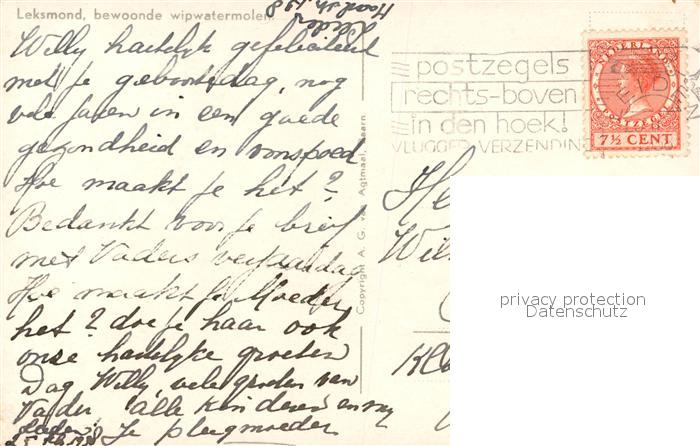 Leksmond, bewoonde wipwatermolen.
Willy hartelijk gefeliciteerd
met je geboortedag, nog
vele jaren in een goede
gezondheid en voorspoed
Hoe maakt je het?
Bedankt voor je brief
met Vaders verjaardag
Hoe maakt je Moeder
het? doe je haar ook
onze hartelijke groeten
Dag Willy, vele groeten van
Vader alle kinderen en my
Je pleegmoeder
Leiden
Copyright A. G. van Agtmaal, Baarn.
postzegels
rechts-boven
in den hoek!
VLUGGER VERZENDIN
NEDERLAND
POSTZEGEL
7½ CENT
He
Wil
privacy protection
Datenschutz